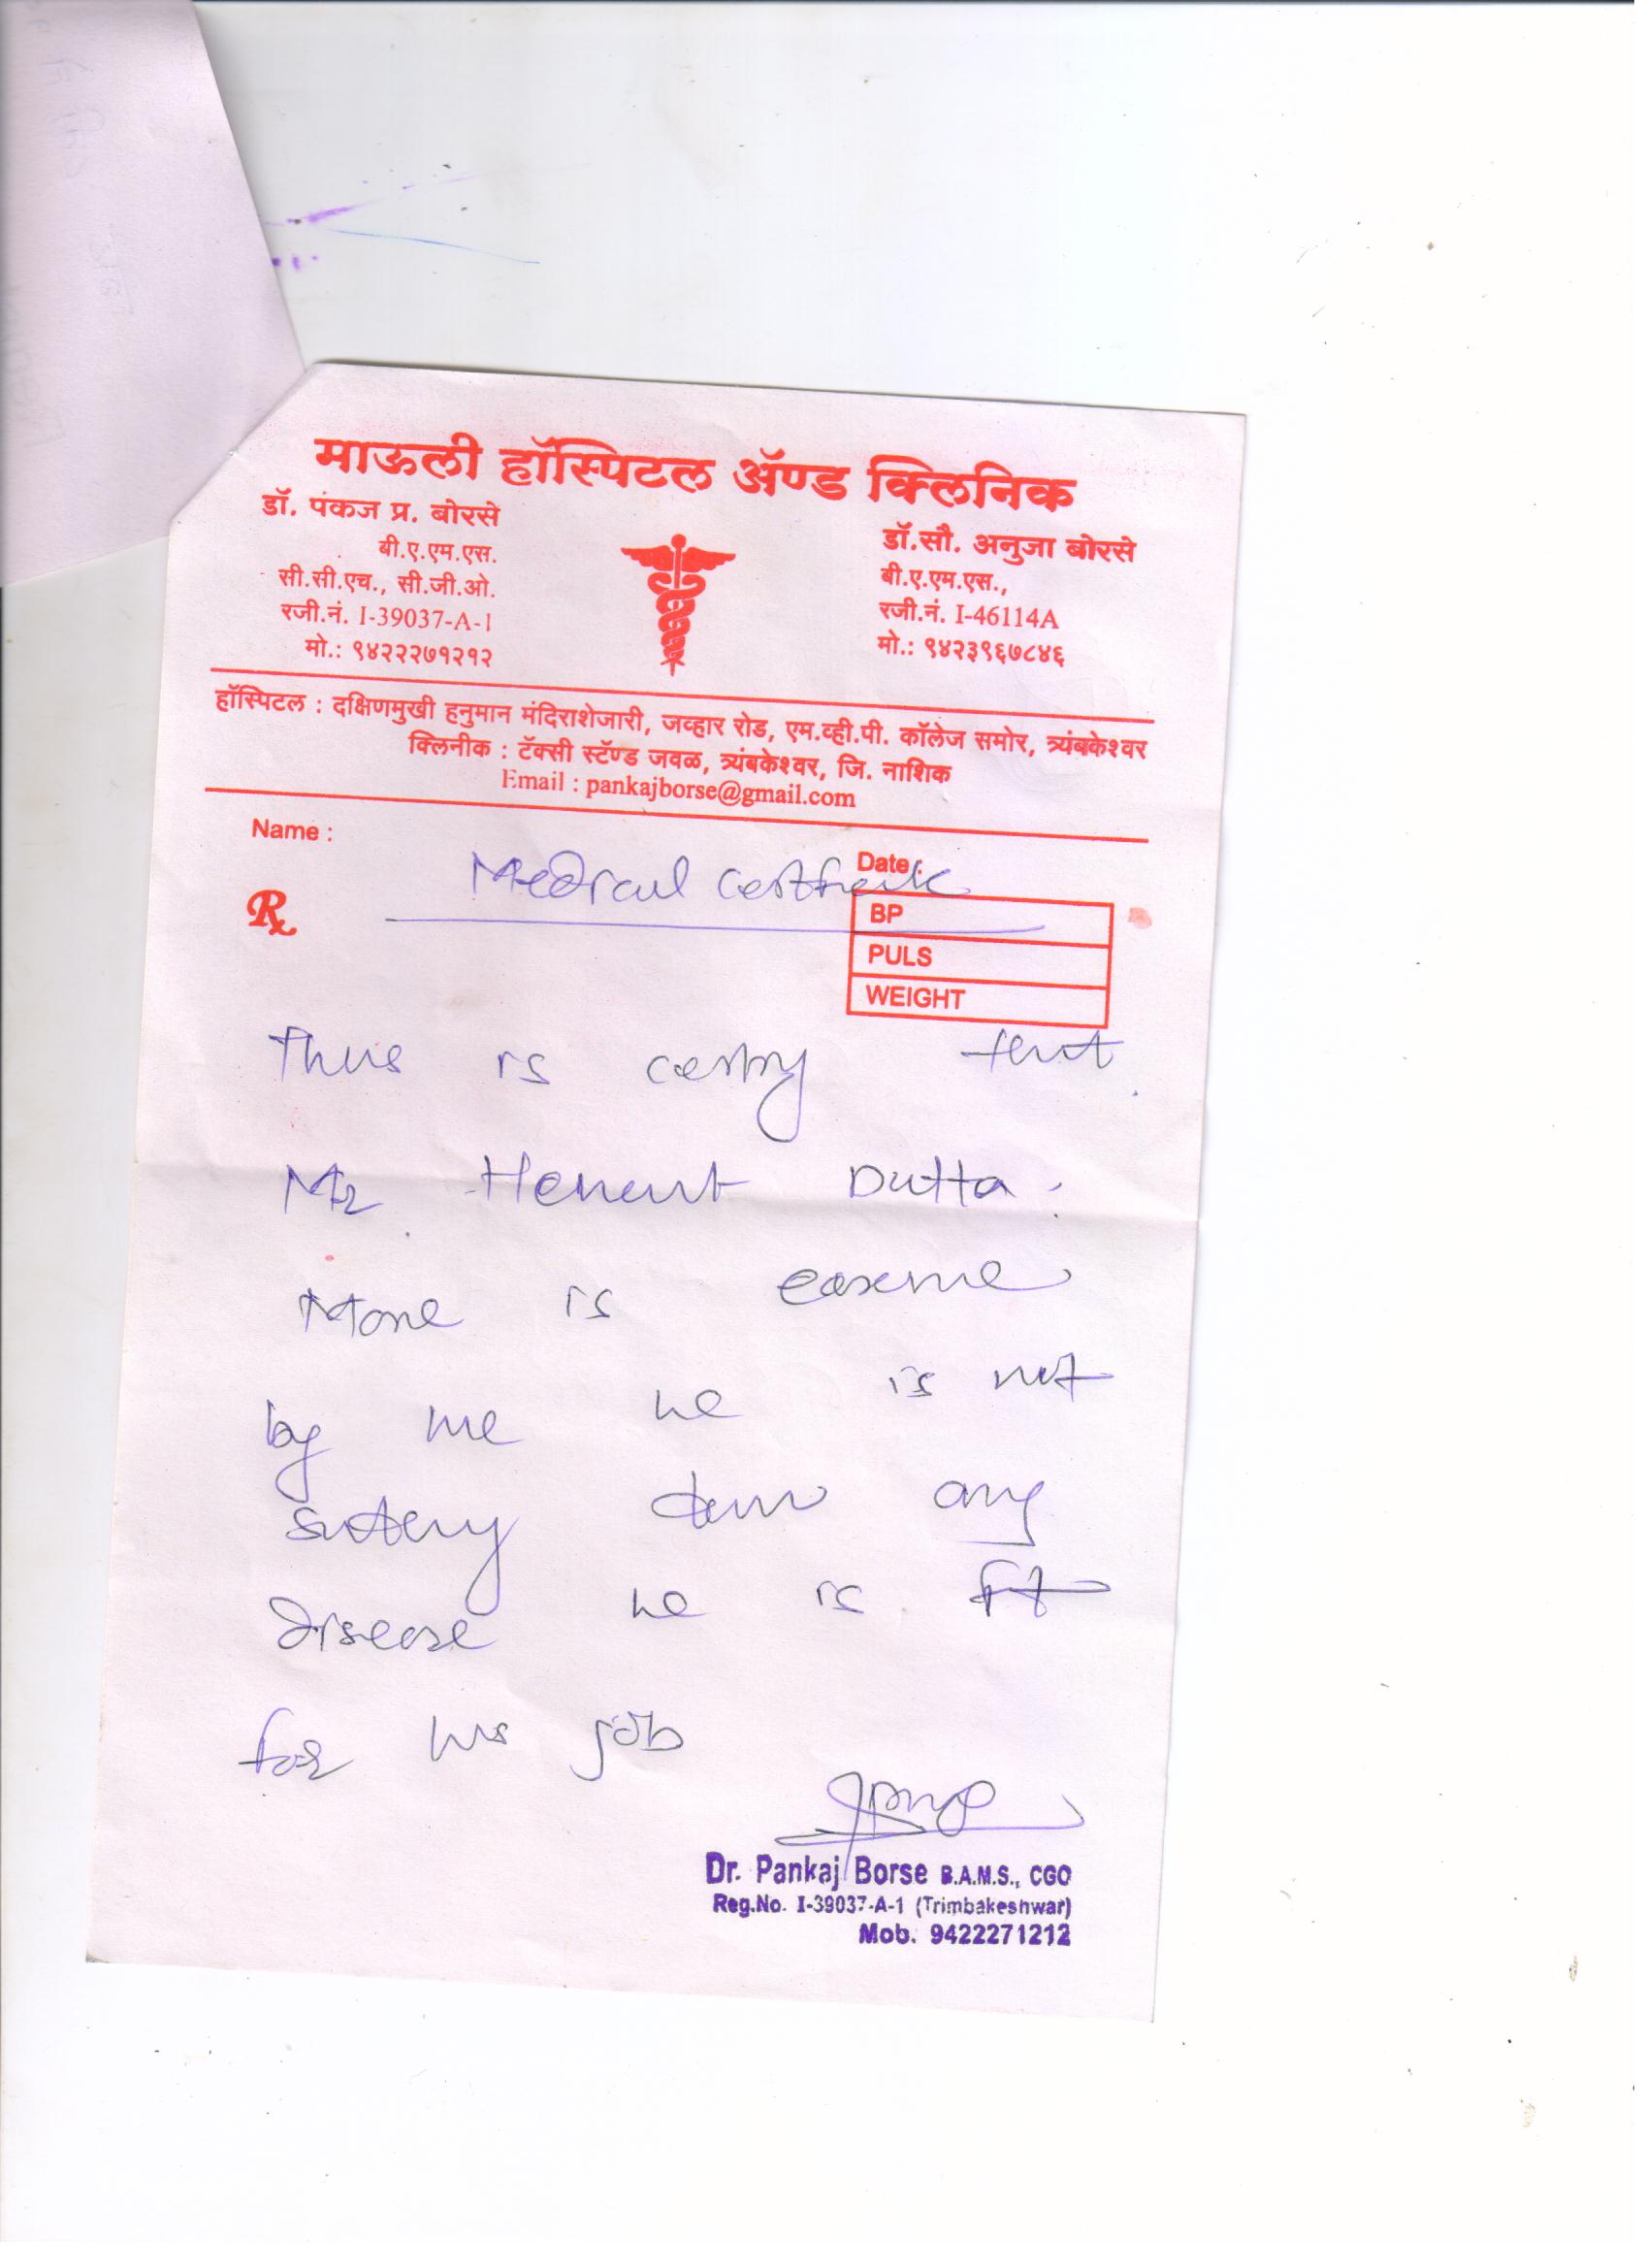 माऊली हॉस्पिटल ॲण्ड क्लिनिक
डॉ. पंकज प्र. बोरसे
बी.ए.एम.एस.
सी.सी.एच., सी.जी.ओ.
रजी.नं. I-39037-A-1
मो.: ९४२२२७१२१२
डॉ.सौ. अनुजा बोरसे
बी.ए.एम.एस.,
रजी.नं. I-46114A
मो.: ९४२३९६७८४६
हॉस्पिटल : दक्षिणमुखी हनुमान मंदिराशेजारी, जव्हार रोड, एम.व्ही.पी. कॉलेज समोर, त्र्यंबकेश्वर
क्लिनीक : टॅक्सी स्टॅण्ड जवळ, त्र्यंबकेश्वर, जि. नाशिक
Email : pankajborse@gmail.com
Name :
Date :
Medical certificate
Rx
BP
PULS
WEIGHT
This is certify that
Mr. Hemant Dutta
More is
by me he is not
any
disease he is fit
for his job
Dr. Pankaj Borse B.A.M.S., CGO
Reg.No. I-39037-A-1 (Trimbakeshwar)
Mob. 9422271212